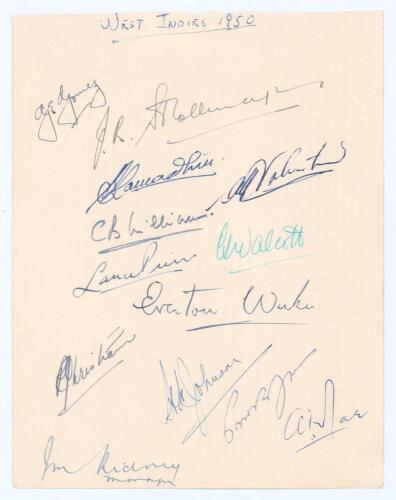 WEST INDIES 1950
G E Gomez
J. B. Stollmeyer
S Ramadhin.
A L Valentine
C B Williams.
C L Walcott
Lance Pierre
Everton Weekes
R Christiani
H H Johnson
Rae
Kidney
manager